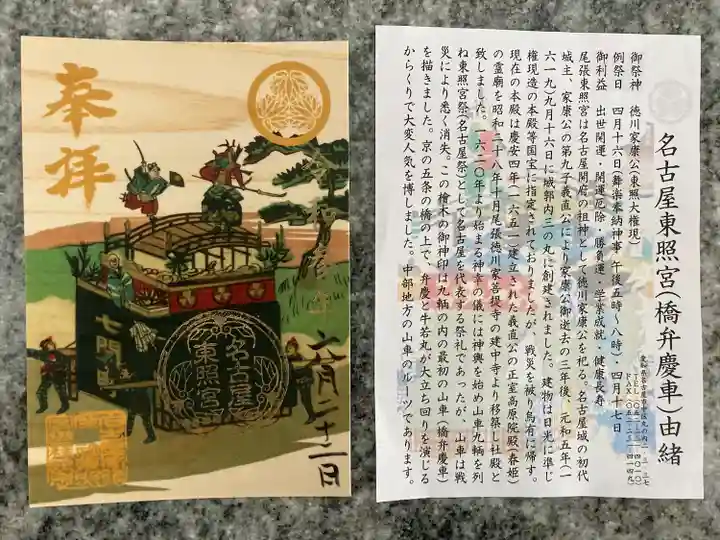 奉拝
七間町
名古屋
東照宮
六月二十二日
名古屋東照宮(橋弁慶車)由緒
御祭神 徳川家康公(東照大権現)
例祭日 四月十六日(舞楽奉納神事・午後五時〜八時)・四月十七日
御利益 出世開運・開運厄除・勝負運・学業成就・健康長寿
尾張東照宮は名古屋開府の祖神として徳川家康公を祀る。名古屋城の初代
城主、家康公の第九子義直公により家康公御逝去の三年後、元和五年(一
六一九)九月十六日に城郭内三の丸に創建されました。建物は日光に準じ
権現造の本殿等国宝に指定されておりましたが、戦災を被り烏有に帰す。
現在の本殿は慶安四年(一六五一)建立された義直公の正室高原院殿(春姫)
の霊廟を昭和二十八年十月尾張徳川家菩提寺の建中寺より移築し社殿と
致しました。一六二〇年より始まる神幸の儀には神輿を始め山車九輌を列
ね東照宮祭(名古屋祭)として名古屋を代表する祭礼であったが、山車は戦
災により悉く消失。この檜木の御神印は九輌の内の最初の山車(橋弁慶車)
を描きました。京の五条の橋の上で、弁慶と牛若丸が大立ち回りを演じる
からくりで大変人気を博しました。中部地方の山車のルーツであります。